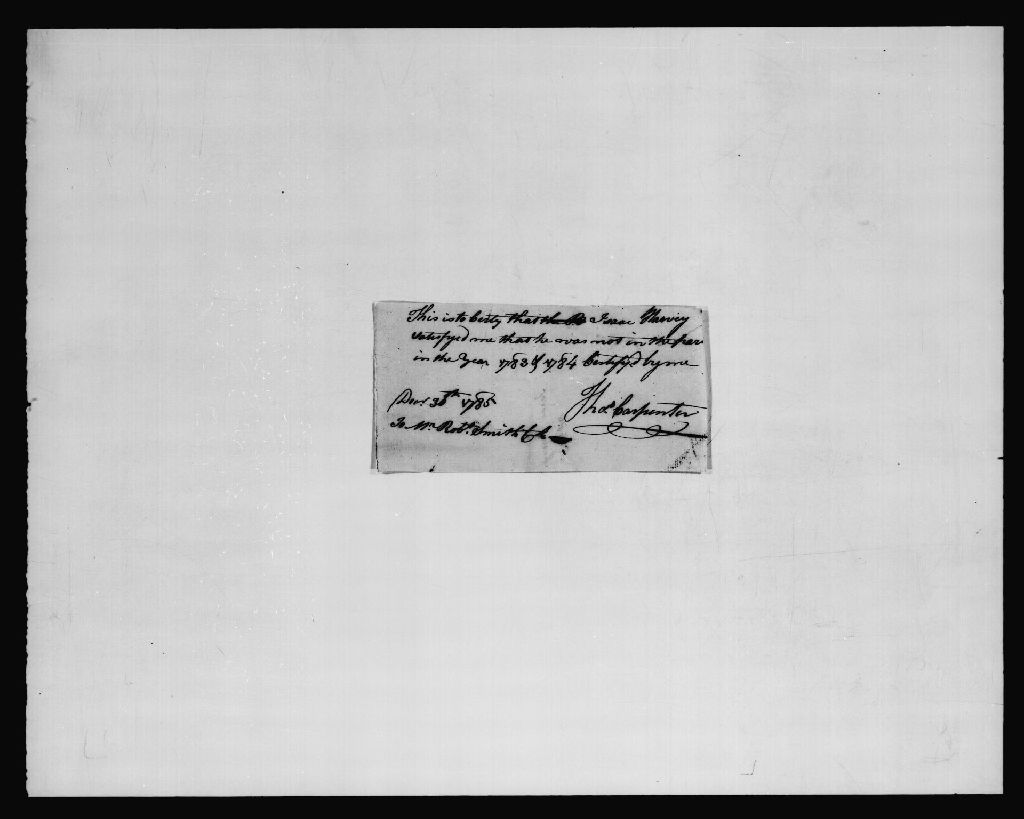 This is to Certy that the Isaac
satisfyed me that he was not in the
in the Year 1783 & 1784 Certifyd by me
Thos. Carpenter
Decr 30th 1785
To Mr. Robt. Smith